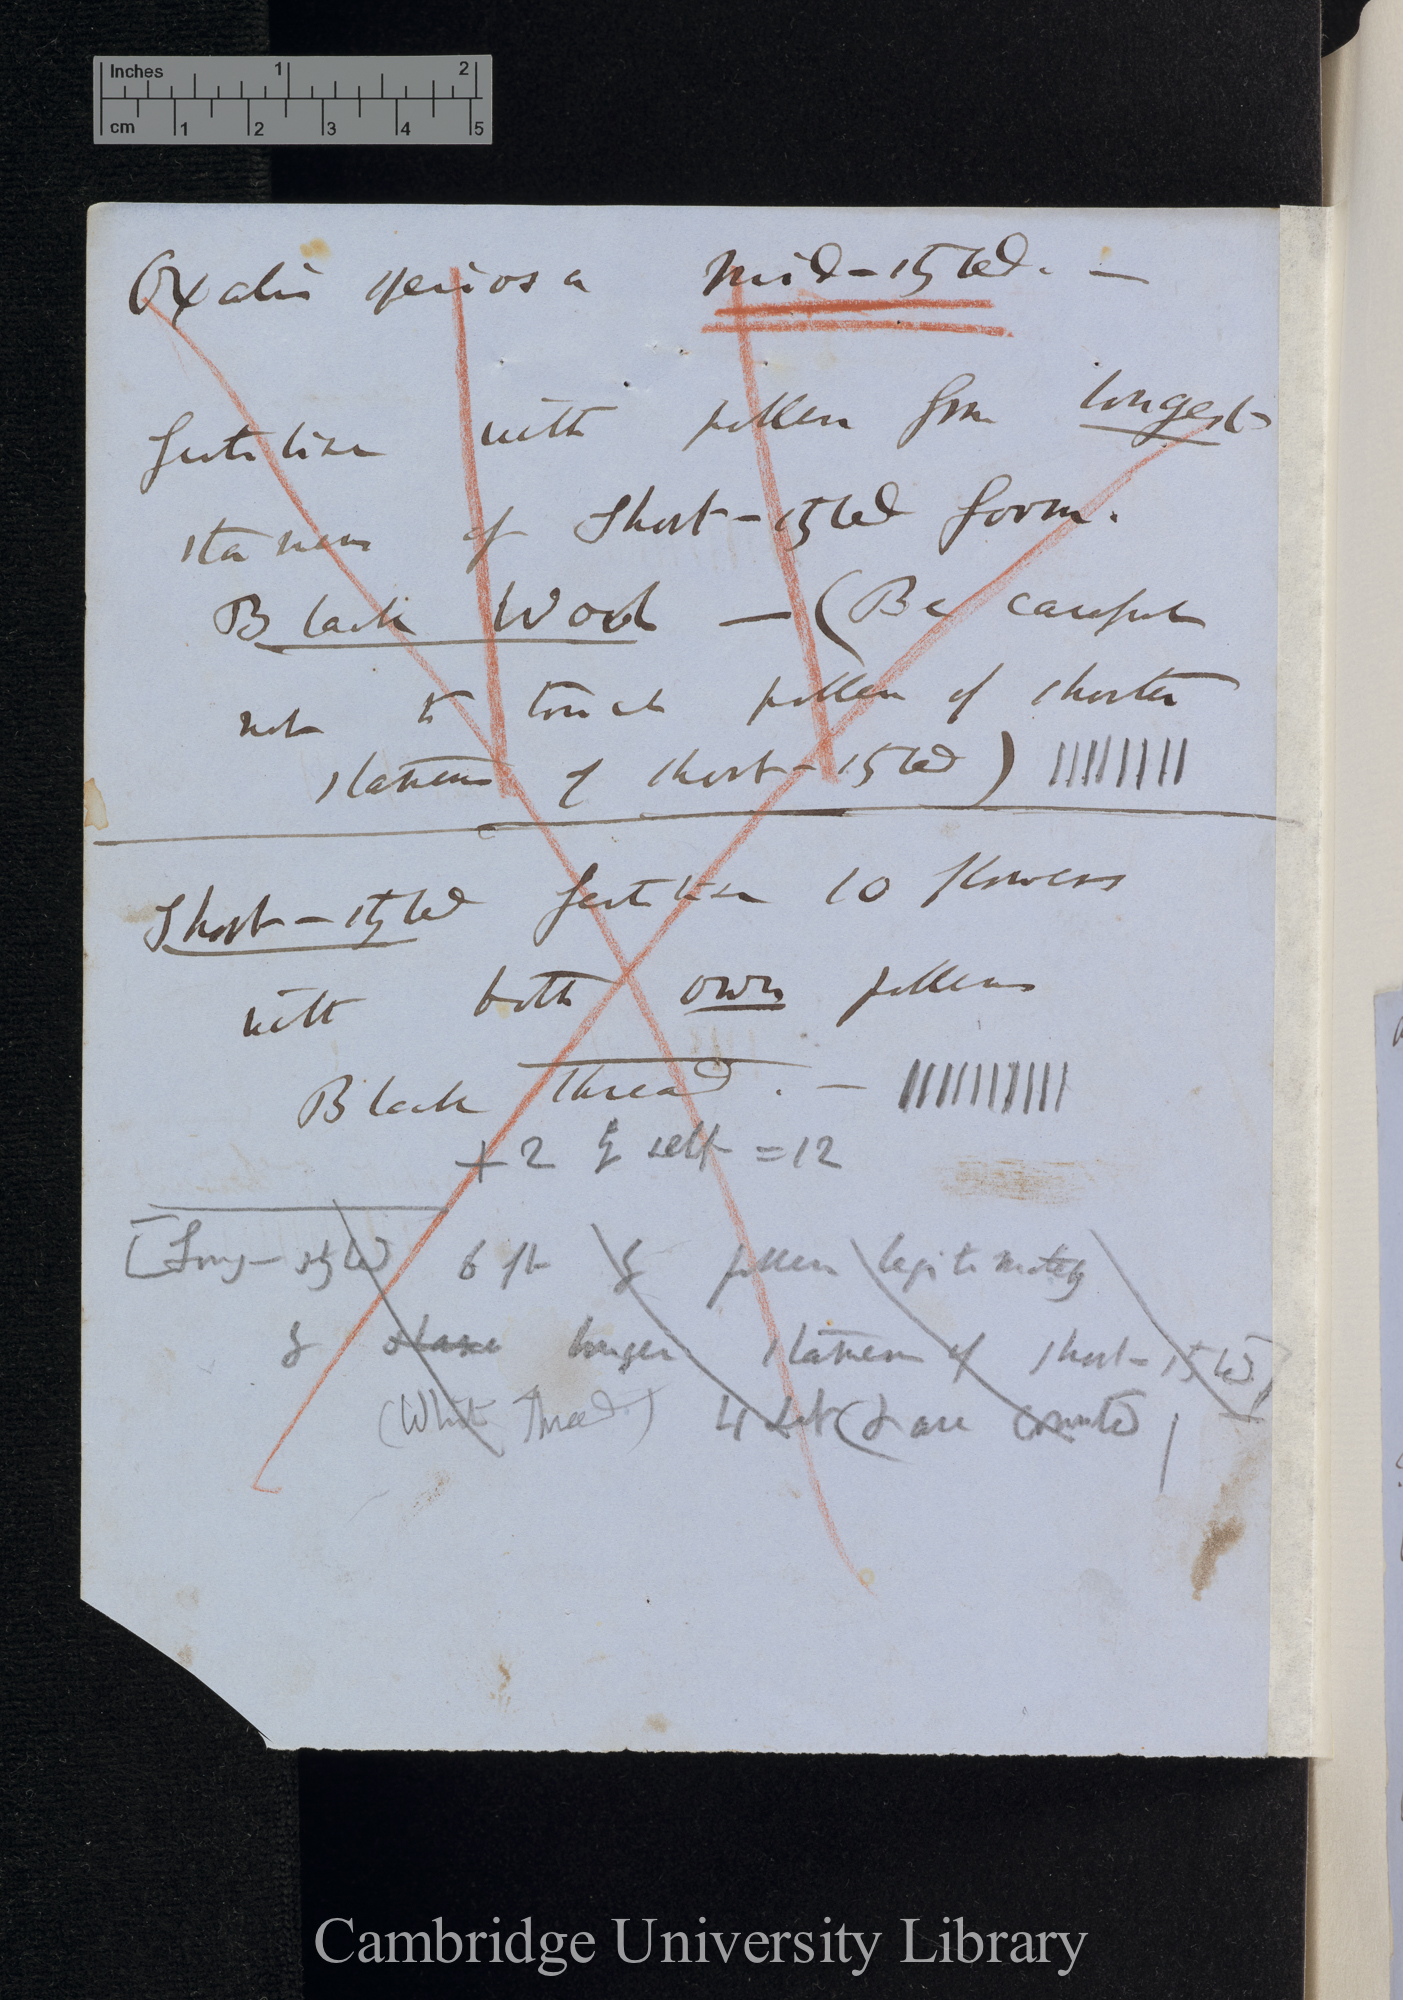 Inches 1 2
cm 1 2 3 4 5
Oxalis speciosa Mid-styled. —
fertilise with pollen from longest
stamens of Short-styled form.
Black Wool — (Be careful
not to touch pollen of shorter
stamens of short-styled) |||||||||
Short-styled fertilise 10 flowers
with both own pollens
Black thread. — ||||||||||
+ 2 self = 12
[Long-styled 6 fl by pollen legitimately
by longer stamens of short-styled]
(White Thread)
Cambridge University Library